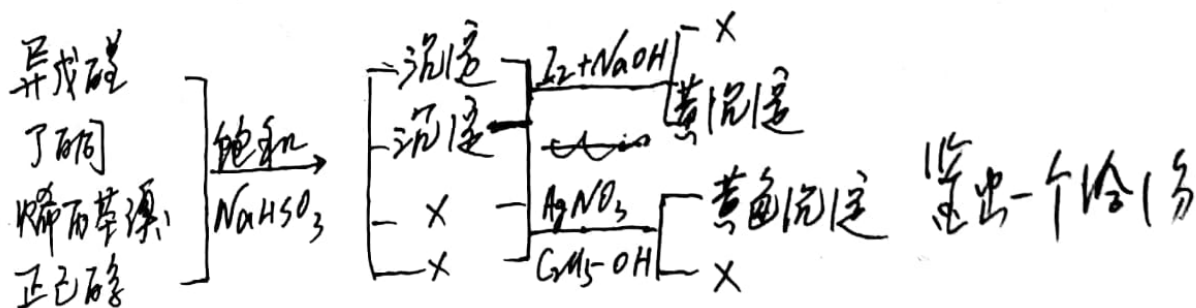 异戊醛
丁酮
烯丙基溴
正己醇
饱和
NaHSO₃
沉淀
沉淀
X
X
I₂+NaOH
X
黄沉淀
AgNO₃
C₂H₅-OH
黄色沉淀
X
鉴出一个给1分